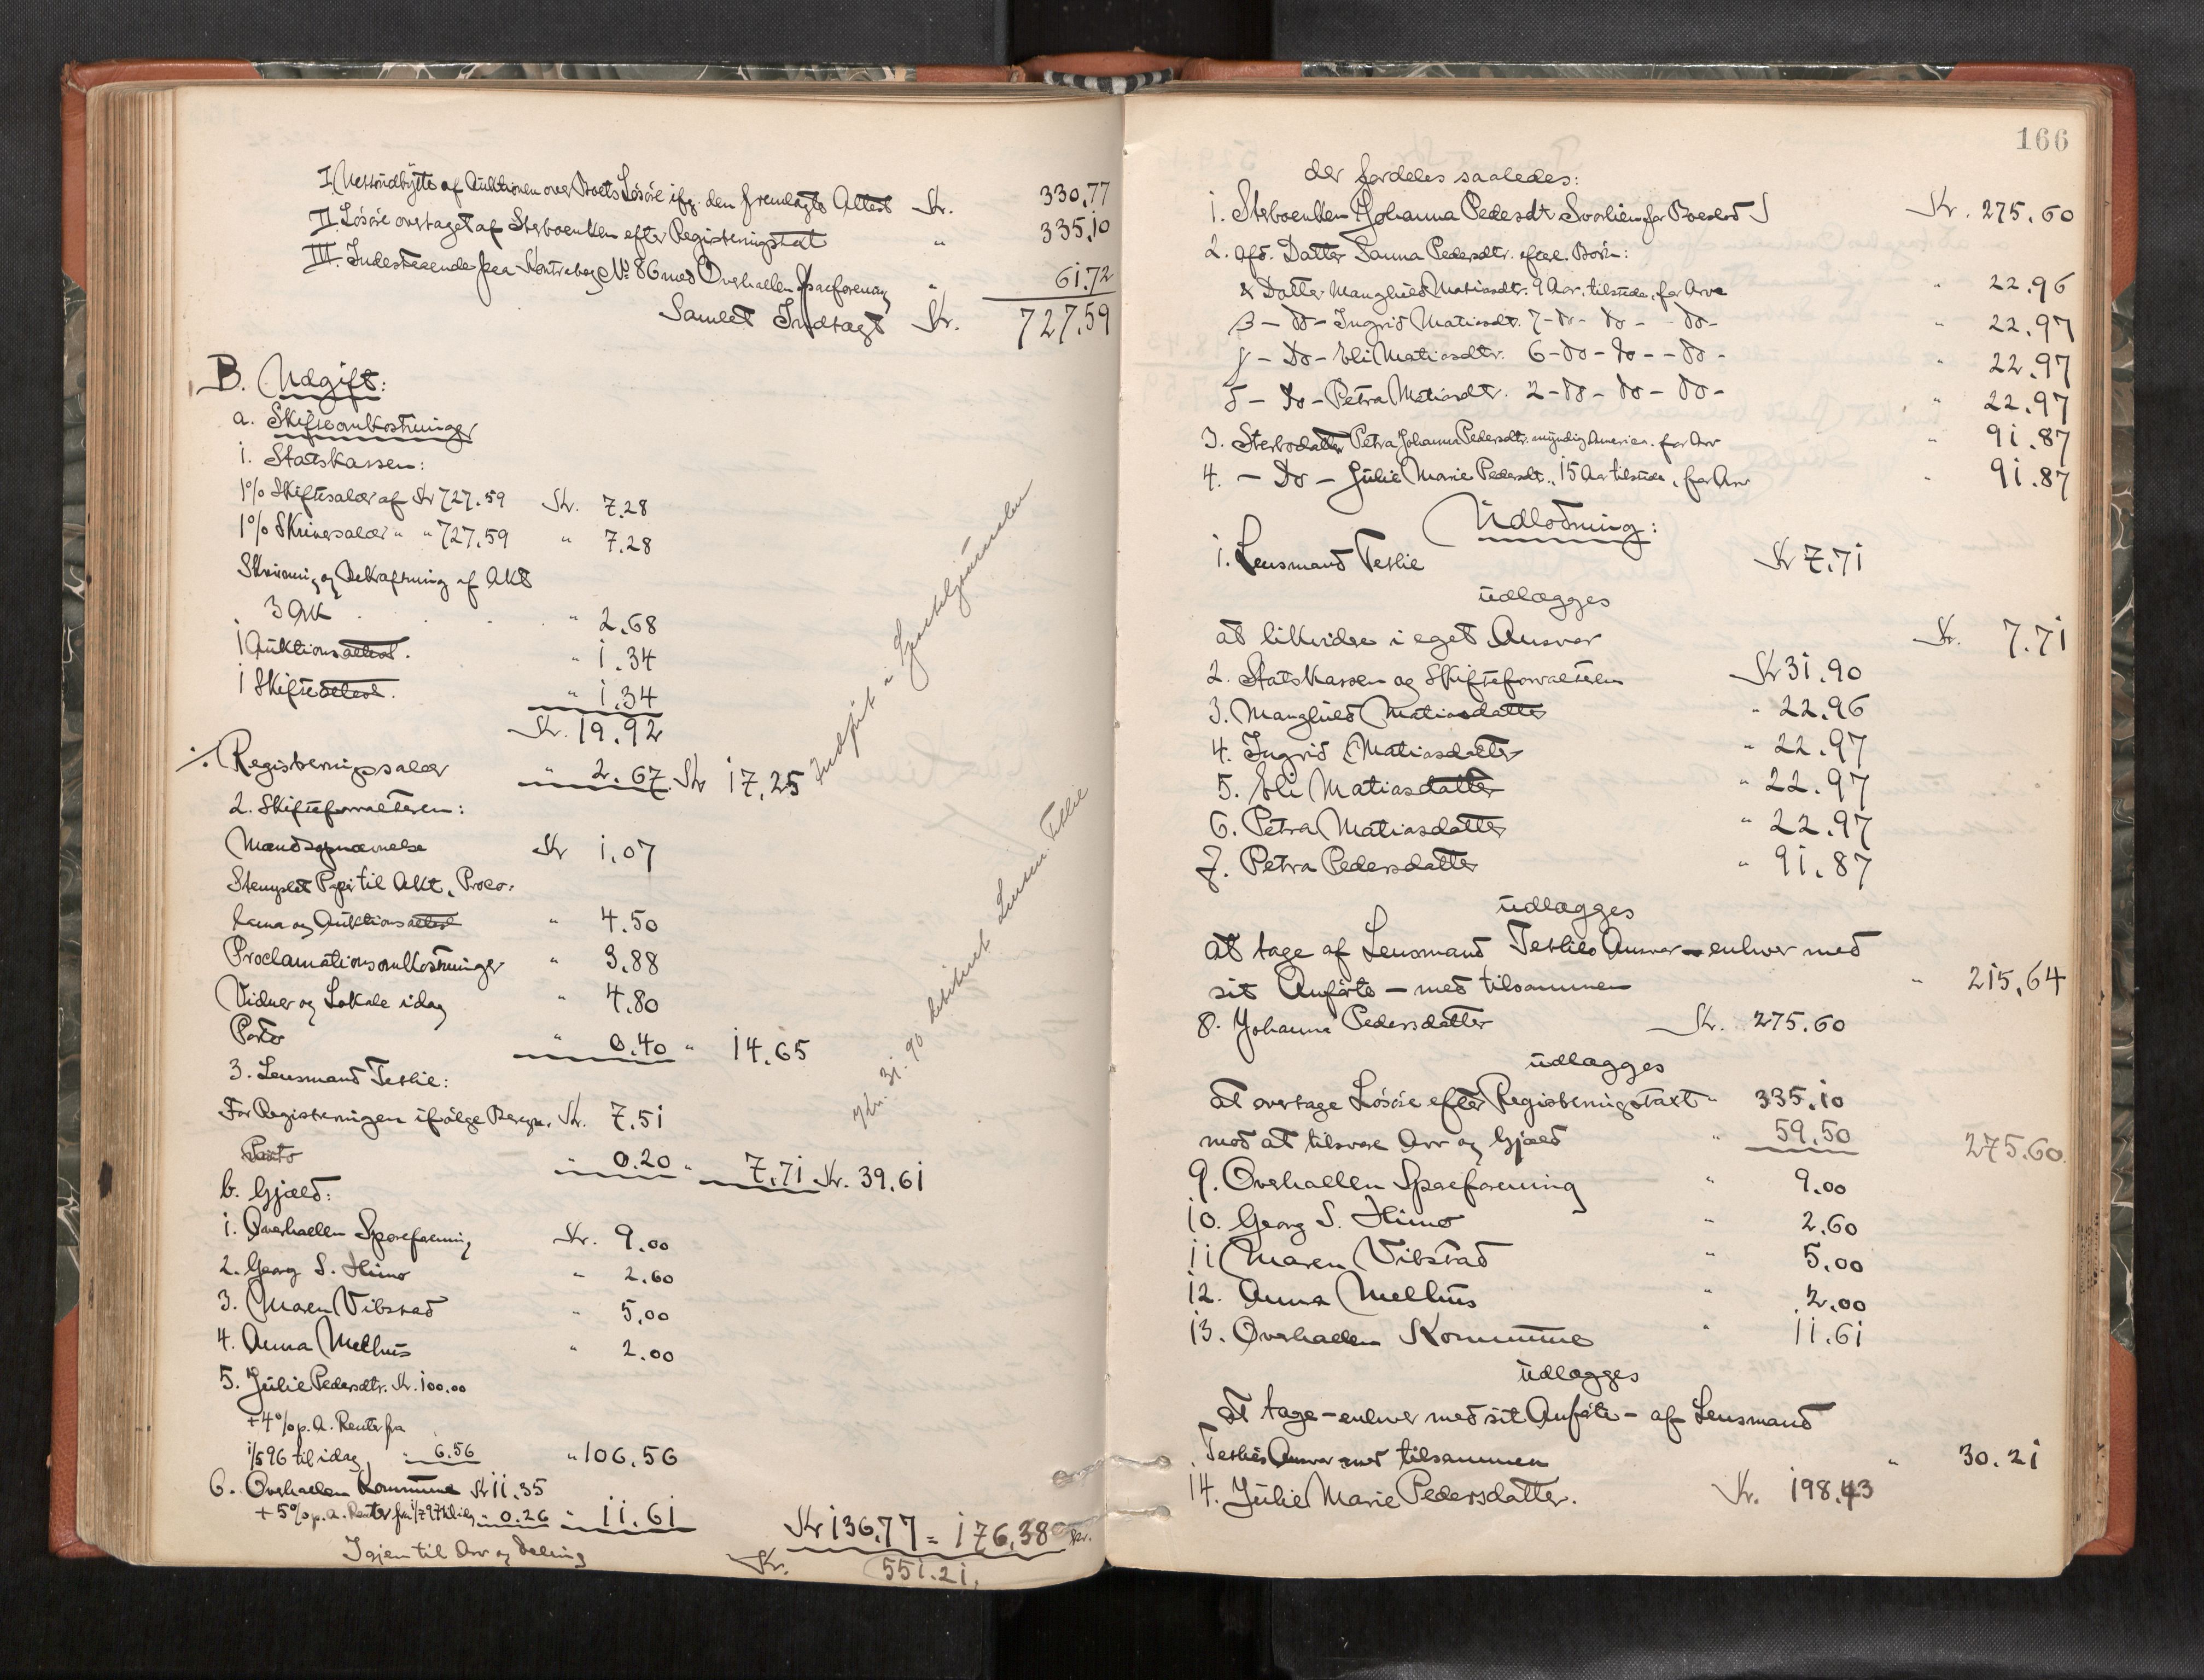 I. Nettoudbytte af Auktionen over Boets Løsøre ifg. den fremlagte Attest Kr. 330,77
II. Løsøre overtaget af Sterboenken efter Registreringstaxt " 335,10
III. Indestaaende paa Kontrabog No 86 med Overhallen Spareforening " 61,72
Samlet Indtægt Kr. 727,59
B. Udgift:
a. Skifteomkostninger
1. Statskassen:
1% Skiftesalær af Kr 727.59 Kr. 7.28
1% Skriversalær " " 727.59 " 7.28
Skrivning og Bekræftning af Akt
3 Ark " 2.68
1 Auktionsattest. " 1.34
1 Skifteattest. " 1.34
Kr. 19.92
./. Registreringssalær " 2.67 Kr 17,25
2. Skifteforvalteren:
Mandsopnævnelse Kr 1.07
Stemplet Papir til Akt, Procla-
kama og Auktionsattest " 4.50
Proclamationsomkostninger " 3.88
Vidner og Lokale idag " 4.80
Porto " 0.40 " 14.65
3. Lensmand Teslie:
For Registreringen ifølge Beregn. Kr. 7.51
Porto " 0.20 " 7.71 Kr. 39.61
b. Gjæld:
1. Overhallen Spareforening Kr. 9.00
2. Georg S. Himo " 2.60
3. Maren Vibstad " 5.00
4. Anna Melhus " 2.00
5. Julie Pedersdtr. Kr. 100.00
+ 4% p. A. Renter fra
1/5 96 til idag " 6.56 " 106.56
6. Overhallen Kommune Kr 11.35
+ 5% p. a. Renter fra 1/7 97 til idag " 0.26 " 11.61 Kr 136.77 = 176.38 Kr.
Igjen til Arv og Deling Kr. 551.21.
Indført i Sporteljournalen
Kr. 31.90 debiteret Lensm. Teslie
166
der fordeles saaledes:
1. Sterboenken Johanna Pedersdt Svarlien for Boeslod Kr. 275.60
2. Afd. Datter Sanna Pedersdtr. efterl. Børn:
α Datter Manghild Matiasdtr. 9 Aar, tilstede, for Arv " 22.96
β – Do – Ingrid Matiasdt. 7 – do – do – – do – " 22.97
γ – Do – Eli Matiasdtr. 6 – do – do – – do – " 22.97
δ – Do – Petra Matiasdt. 2 – do – do – do – " 22.97
3. Sterbodatter Petra Johanna Pedersdtr. myndig, Amerika, for Arv " 91.87
4. – Do – Julie Marie Pedersdt., 15 Aar tilstede, for Arv " 91.87
Udlodning:
1. Lensmand Teslie Kr 7.71
udlægges
at likvidere i eget Ansvar Kr. 7.71
2. Statskassen og Skifteforvalteren Kr 31.90
3. Manghild Matiasdatter " 22.96
4. Ingrid Matiasdatter " 22.97
5. Eli Matiasdatter " 22.97
6. Petra Matiasdatter " 22.97
7. Petra Pedersdatter " 91.87
udlægges
at tage af Lensmand Teslies Ansvar – enhver med
sit Anførte – med tilsammen " 215,64
8. Johanna Pedersdatter Kr. 275.60
udlægges
at overtage Løsøre efter Registreringstaxt " 335.10
mod at tilsvare Arv og Gjæld " 59.50 275.60
9. Overhallen Spareforening " 9.00
10. Georg S. Himo " 2.60
11 Maren Vibstad " 5.00
12. Anna Melhus " 2.00
13. Overhallen Kommune " 11.61
udlægges
at tage – enhver med sit Anførte – af Lensmand
Teslies Ansvar med tilsammen " 30.21
14. Julie Marie Pedersdatter. Kr. 198.43